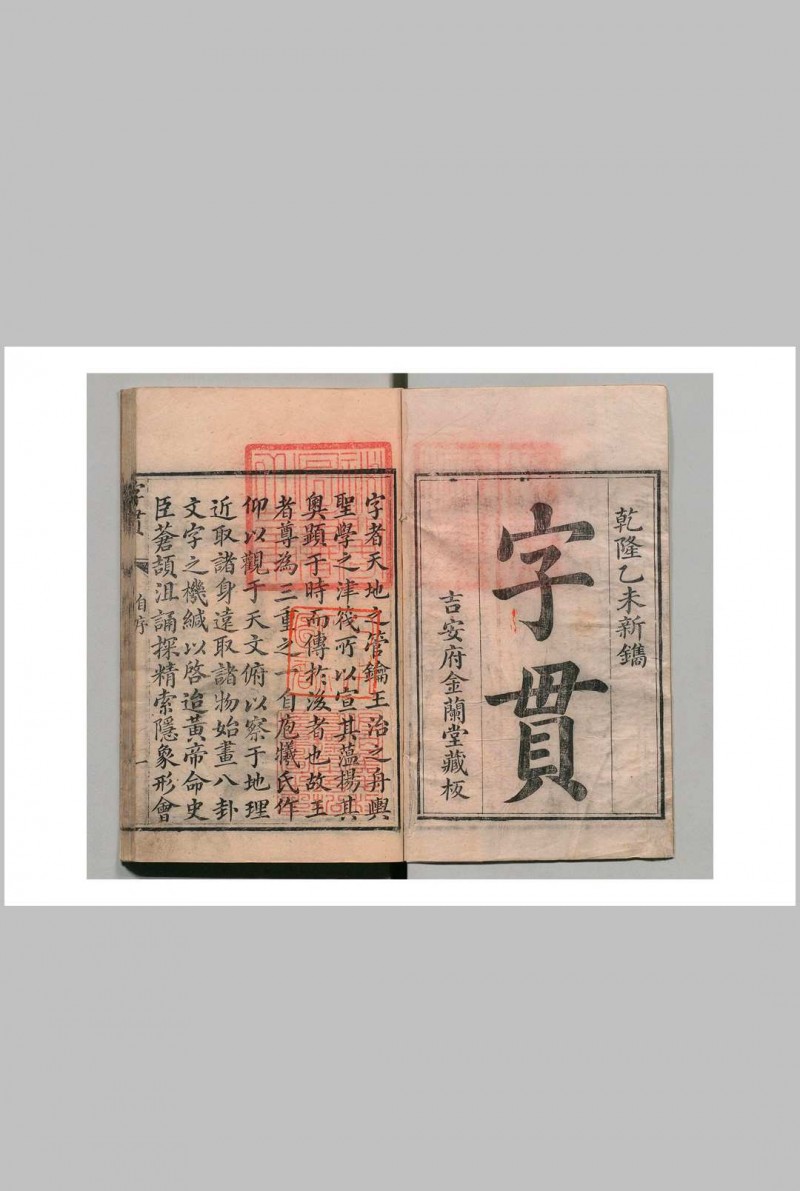 乾隆乙未新鐫
字貫
吉安府金蘭堂藏板
字者天地之管鑰王治之舟輿
聖學之津筏所以宣其蘊揚其
奧顯于時而傳扵後者也故王
者尊為三重之一自庖犧氏作
仰以觀于天文俯以察于地理
近取諸身遠取諸物始畫八卦
文字之機緘以啓迨黃帝命史
臣蒼頡沮誦探精索隱象形會
字貫
自序
一